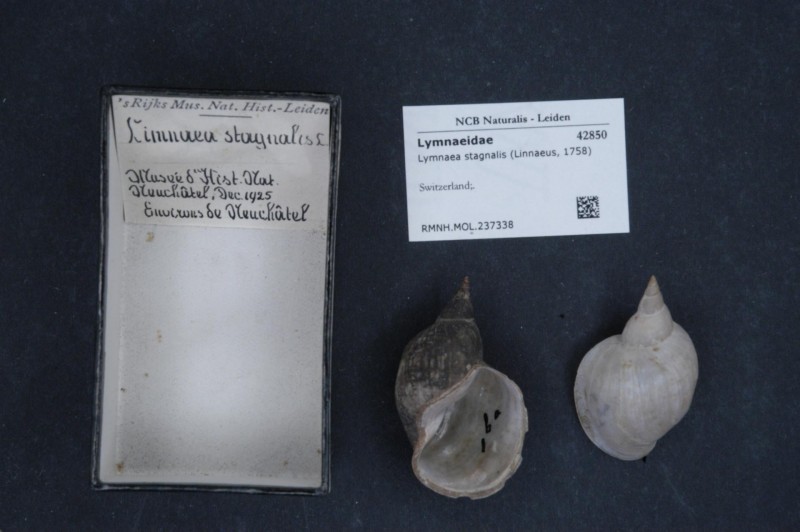 'sRijks Mus. Nat. Hist.-Leiden
Limnaea stagnalis L.
Musée d'Hist. Nat.
Neuchâtel, Dec. 1925
Environs de Neuchâtel
NCB Naturalis - Leiden
Lymnaeidae 42850
Lymnaea stagnalis (Linnaeus, 1758)
Switzerland;.
RMNH.MOL.237338